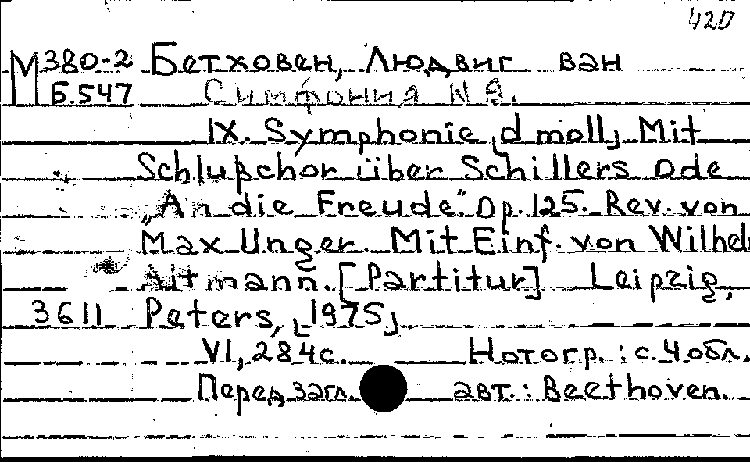 420
М380-2 Бетховен, Людвиг ван
Б.547 Симфония N 9.
IX. Symphonie [d moll] Mit
Schlußchor über Schillers Ode
„An die Freude". Op. 125. Rev. von
Max Unger. Mit Einf. von Wilhel
Altmann. [Partitur] Leipzig,
3611 Peters, [1975]
VI, 284 с. Нотогр.: с. 4 обл.
Перед загл. авт.: Beethoven.